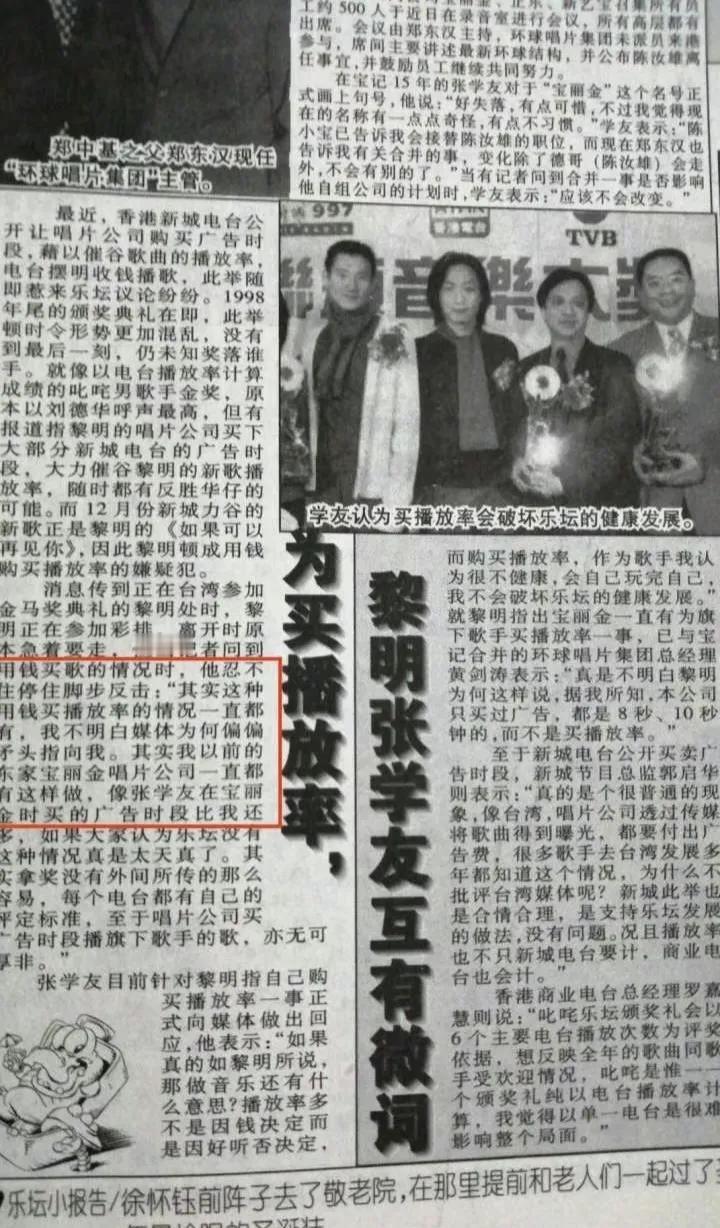 工约500人于近日在录音室进行会议，所有高层都有
出席。会议由郑东汉主持，环球唱片集团未派员来港
参与，席间主要讲述最新环球结构，并公布陈汝雄离
任事宜，并鼓励员工继续共同努力。
在宝记15年的张学友对于“宝丽金”这个名号正
式画上句号，他说：“好失落，有点可惜，不过我觉得现
在的名称有一点点奇怪，有点不习惯。”学友表示：“陈
小宝已告诉我会接替陈汝雄的职位，而现在郑东汉也
告诉我有关合并的事，变化除了德哥（陈汝雄）会走
外，不会有别的了。”当有记者问到合并一事是否影响
他自组公司的计划时，学友表示：“应该不会改变。”
郑中基之父郑东汉现任
“环球唱片集团”主管。
最近，香港新城电台公
开让唱片公司购买广告时
段，藉以催谷歌曲的播放率，
电台摆明收钱播歌，此举随
即惹来乐坛议论纷纷。1998
年尾的颁奖典礼在即，此举
顿时令形势更加混乱，没有
到最后一刻，仍未知奖落谁
手。就像以电台播放率计算
成绩的叱咤男歌手金奖，原
本以刘德华呼声最高，但有
报道指黎明的唱片公司买下
大部分新城电台的广告时
段，大力催谷黎明的新歌播
放率，随时都有反胜华仔的
可能。而12月份新城力谷的
新歌正是黎明的《如果可以
再见你》，因此黎明顿成用钱
购买播放率的嫌疑犯。
消息传到正在台湾参加
金马奖典礼的黎明处时，黎
明正在参加彩排，离开时原
本急着要走，记者问到
用钱买歌的情况时，他忍不
住停住脚步反击：“其实这种
用钱买播放率的情况一直都
有，我不明白媒体为何偏偏
矛头指向我。其实我以前的
东家宝丽金唱片公司一直都
有这样做，像张学友在宝丽
金时买的广告时段比我还
多，如果大家认为乐坛没有
这种情况真是太天真了。其
实拿奖没有外间所传的那么
容易，每个电台都有自己的
评定标准，至于唱片公司买
广告时段播旗下歌手的歌，亦无可
厚非。”
张学友目前针对黎明指自己购
买播放率一事正
式向媒体做出回
应，他表示：“如果
真的如黎明所说，
那做音乐还有什
么意思？播放率多
不是因钱决定而
是因好听否决定，
997
TVB
聯頒音樂大獎
学友认为买播放率会破坏乐坛的健康发展。
为买播放率，
黎明张学友互有微词
而购买播放率，作为歌手我认
为很不健康，会自己玩完自己，
我不会破坏乐坛的健康发展。”
就黎明指出宝丽金一直有为旗
下歌手买播放率一事，已与宝
记合并的环球唱片集团总经理
黄剑涛表示：“真是不明白黎明
为何这样说，据我所知，本公司
只买过广告，都是8秒、10秒
钟的，而不是买播放率。”
至于新城电台公开买卖广
告时段，新城节目总监郭启华
则表示：“真的是个很普通的现
象，像台湾，唱片公司透过传媒
将歌曲得到曝光，都要付出广
告费，很多歌手去台湾发展多
年都知道这个情况，为什么不
批评台湾媒体呢？新城此举也
是合情合理，是支持乐坛发展
的做法，没有问题。况且播放率
也不只新城电台要计，商业电
台也会计。”
香港商业电台总经理罗嘉
慧则说：“叱咤乐坛颁奖礼会以
6个主要电台播放次数为评奖
依据，想反映全年的歌曲同歌
手受欢迎情况，叱咤是惟一一
个颁奖礼纯以电台播放率计
算，我觉得以单一电台是很难
影响整个局面。”
乐坛小报告/徐怀钰前阵子去了敬老院，在那里提前和老人们一起过了